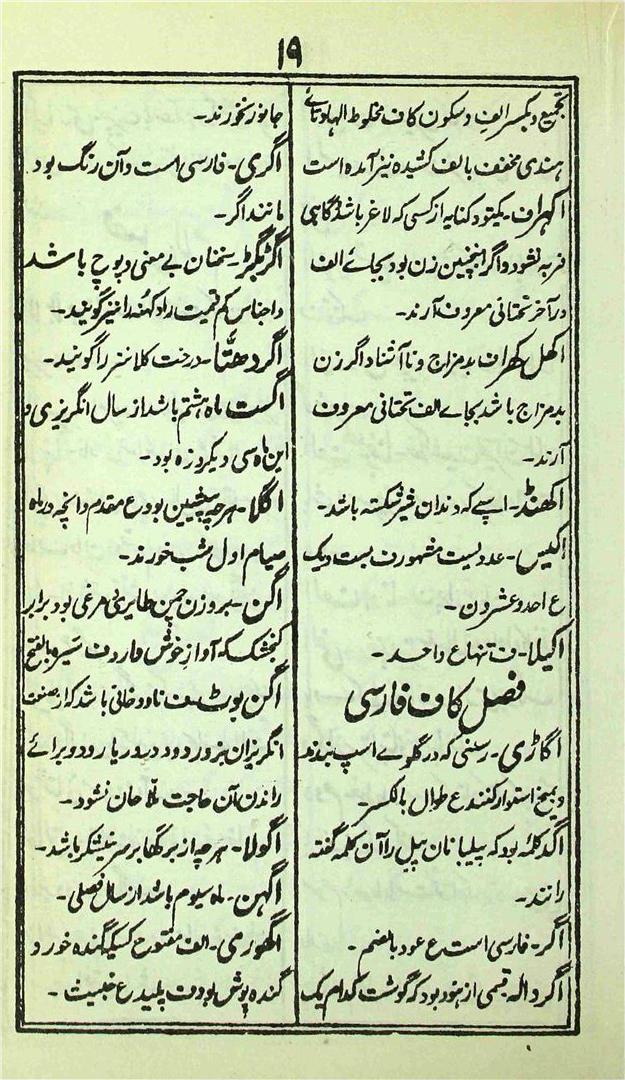 ۱۹
تجمیع و بکسر الف و سکون کاف مخلوط الهاو تائے
ہندی مخفف بالف کشیدہ نیز آمدہ است
اکہراف۔ یکتو و کنایہ از کسی کہ لاغر باشد و گاہی
فربہ نشود و اگر اینچنین زن بود بجائے الف
در آخر تحتانی معروف آرند۔
اکھل کھراف بد مزاج و نا آشنا و اگر زن
بد مزاج باشد بجاے الف تحتانی معروف
آرند۔
اکھنڈ۔ اسپے کہ دندان شیر نشکستہ باشد۔
اکیس۔ عددیست مشہور ف بست و یک
ع احد و عشرون۔
اکیلا۔ ف تنہا ع واحد۔
فصل کاف فارسی
اگاڑی۔ رسنی کہ در گلوے اسپ بندند
و بمیخ استوار کنند ع طوال بالکسر۔
اگد کلمہ بود کہ پیلبانان پیل را آن کلمہ گفتہ
رانند۔
اگر۔ فارسی است ع عود بالضم۔
اگر والہ قسمی از ہنود بود کہ گوشت کدام یک
جانور نخورند۔
اگری۔ فارسی است و آن رنگ بود
مانند اگر۔
اگڑبگڑ۔ سخنان بے معنی و پوچ باشد
و اجناس کم قیمت را و کہنہ را نیز گویند۔
اگر دھتّا۔ درخت کلانتر را گویند۔
اگست ماہ ہشتم باشد از سال انگریزی و
این ماہ سی و یکروزہ بود۔
اگلا۔ ہر چہ پیشین بود ع مقدم و آنچہ در ماہ
صیام اول شب خورند۔
اگن۔ بر وزن چمن طایری و مرغی بود برابر
کنجشک کہ آواز خوش دارد ف سیرہ بالفتح
اگن بوٹ۔ ف ناو دخانی باشد کہ از صنعت
انگریزان بزور دود در دریا رود و برائے
راندن آن حاجت ملاحان نشود۔
اگولا۔ ہر چہ از برگہا بر سر نیشکر باشد۔
اگہن۔ ماہ سیوم باشد از سال فصلی۔
اگھوری۔ الف مفتوح کسیکہ گندہ خور و
گندہ پوش بود ف پلید ع خبیث۔